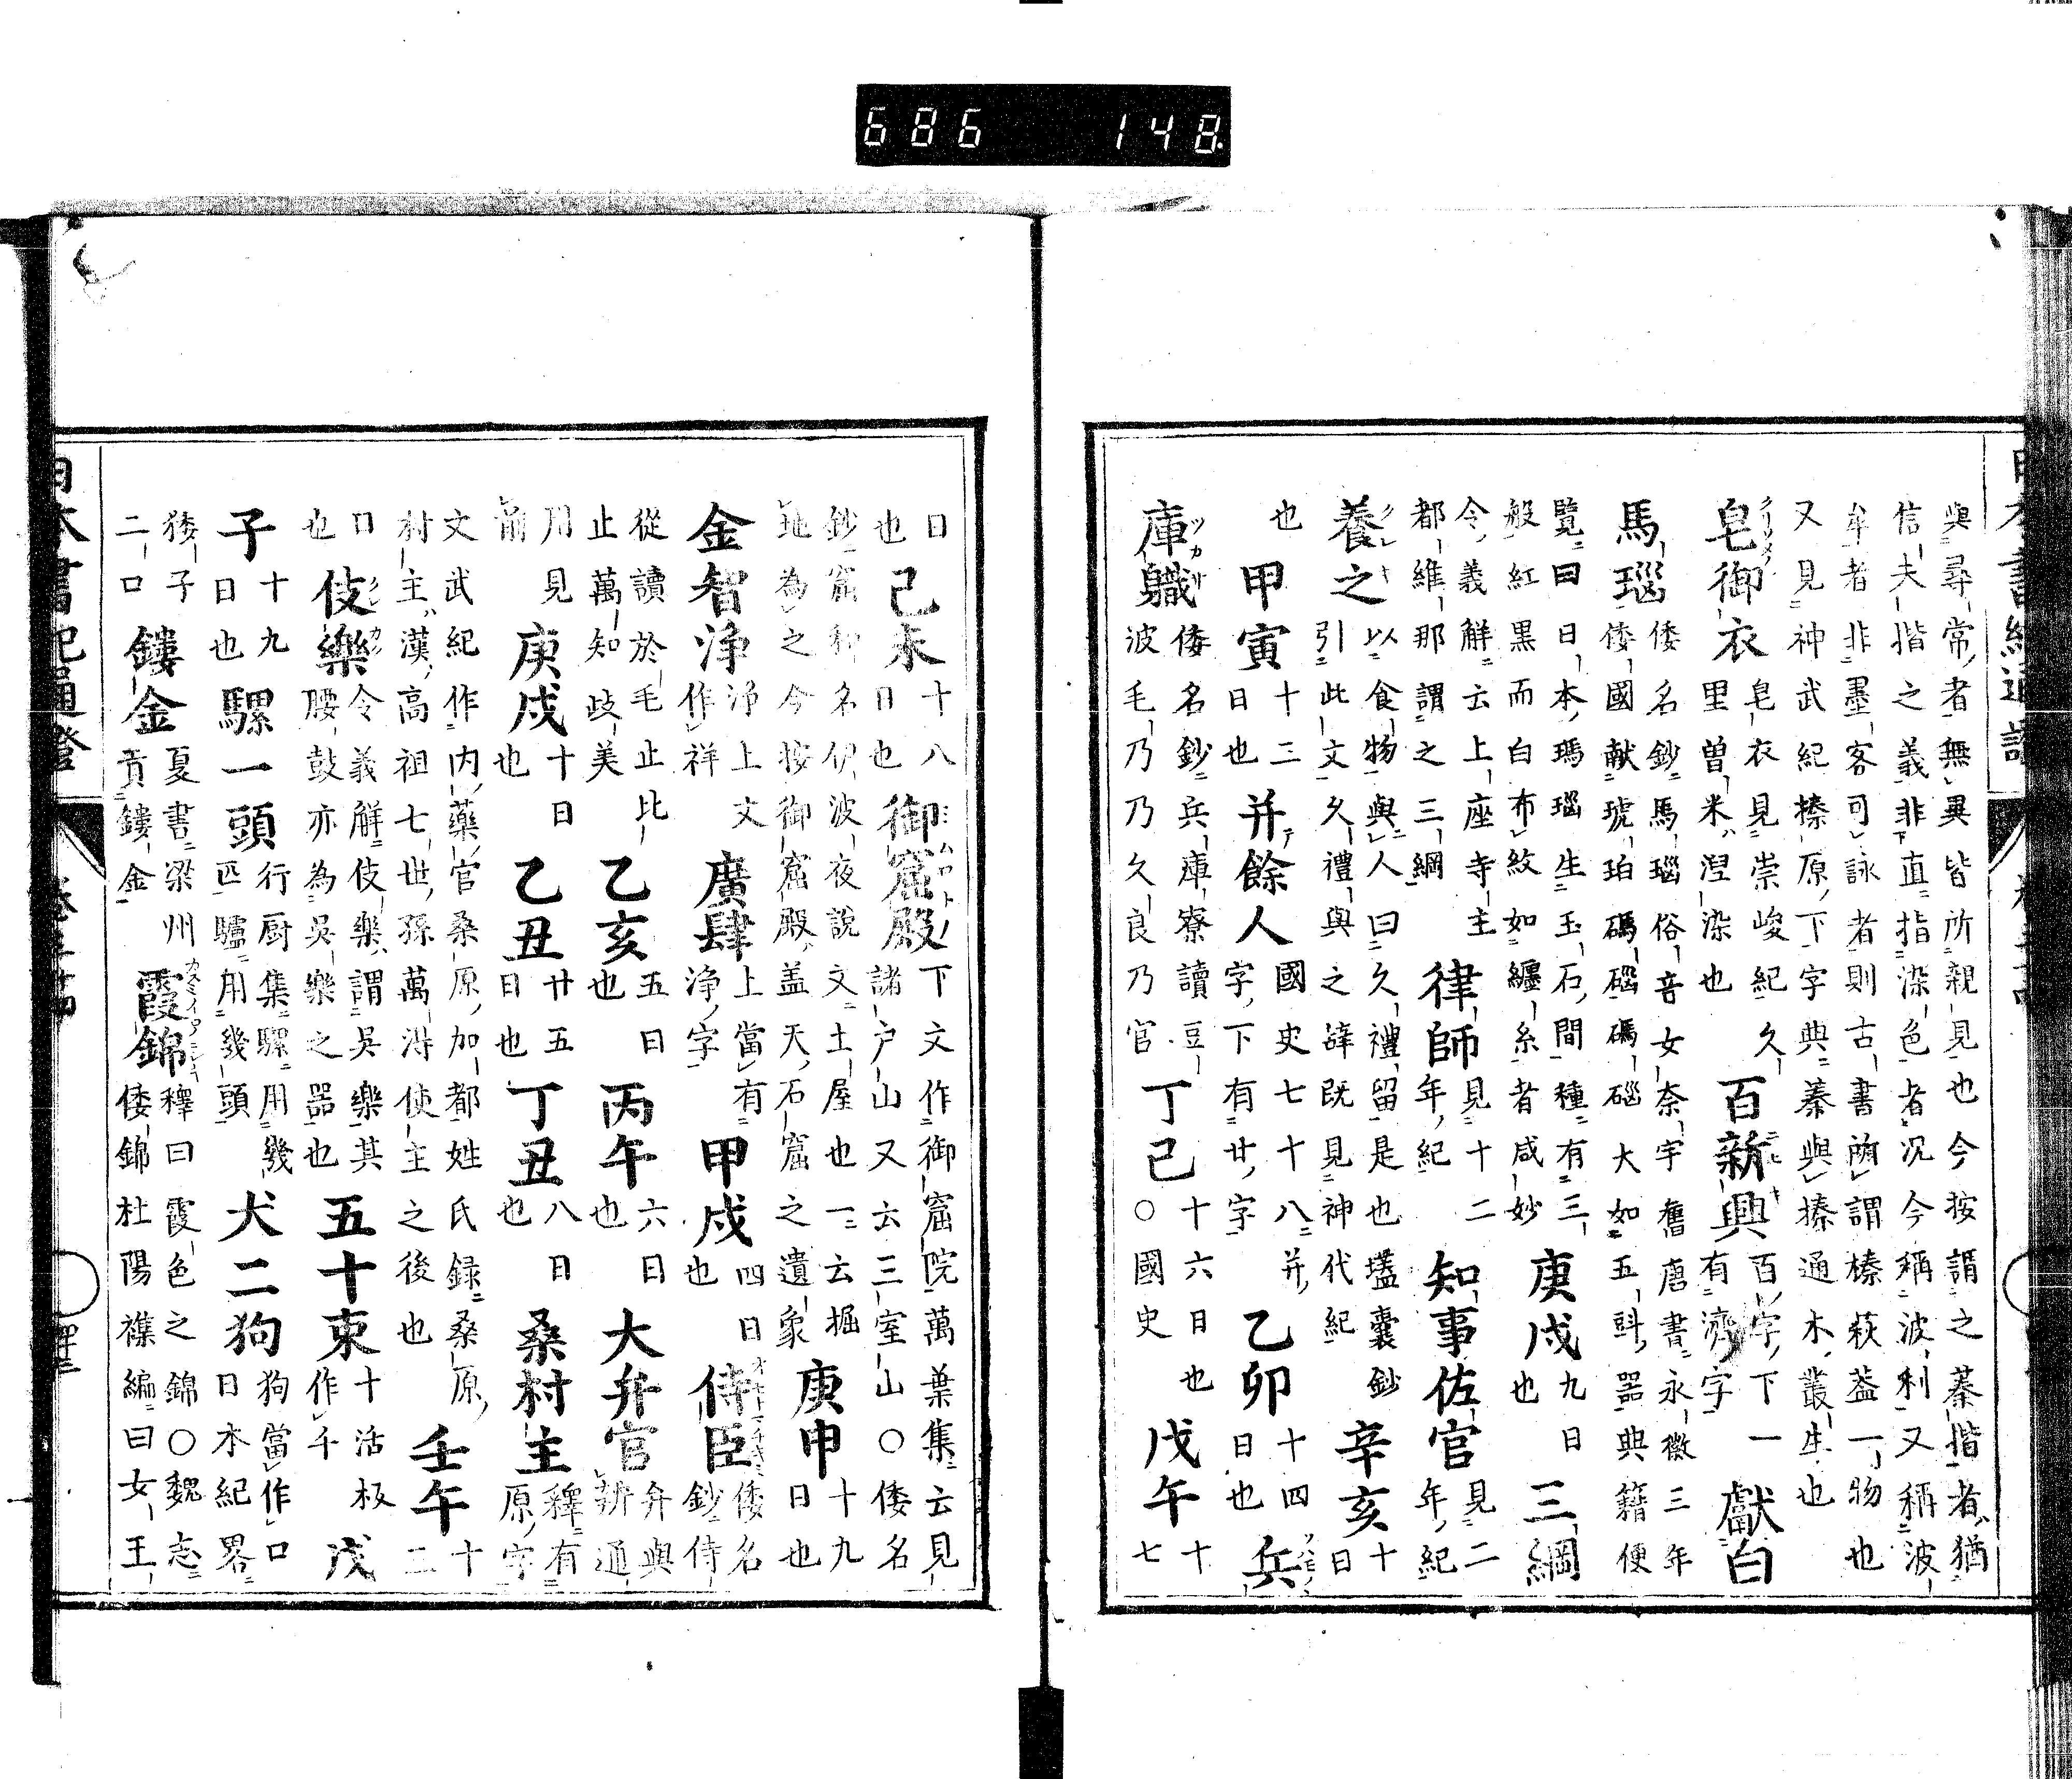 與尋常者無異皆所親見也今按謂之蓁揩者猶
信夫揩之義非直指染色者况今稱波利又稱波
牟者非墨客可詠者則古書所謂榛萩蓋一物也
又見神武紀榛原下字典蓁與榛通木叢生也
皂御衣 皂衣見崇峻紀久里曽米涅染也 百新興 百字下一有濟字 獻白
馬瑙 倭名鈔馬瑙俗音女奈宇舊唐書永徽三年倭國献琥珀碼碯碼碯大如五斗器典籍便
覽曰日本瑪瑙生玉石間種有三般紅黒而白布紋如纏糸者咸妙 庚戌 九日也 三綱
令義解云上座寺主都維那謂之三綱 律師 見十二年紀 知事佐官 見二年紀
養之 以食物與人曰久禮留是也壒嚢鈔引此文久禮與之辞既見神代紀 辛亥 十日
也 甲寅 十三日也 并餘人 國史七十八并字下有廿字 乙卯 十四日也 兵
庫職 倭名鈔兵庫寮讀豆波毛乃乃久良乃官 丁巳 十六日也○國史 戊午 十七
日也 己未 十八日也 御窟殿 下文作御窟院萬葉集云見諸戸山又云三室山○倭名
鈔窟和名伊波夜説文土屋也一云掘地為之今按御窟殿盖天石窟之遺象 庚申 十九日也
金智淨 淨上文作祥 廣肆 上當有淨字 甲戌 四日也 侍臣 倭名鈔侍
從讀於毛止比止萬知歧美 乙亥 五日也 丙午 六日也 大弁官 弁與辨通
用見前 庚戌 十日也 乙丑 廿五日也 丁丑 八日也 桑村主 釋有原字
文武紀作内藥官桑原加都姓氏録桑原村主漢高祖七世孫萬得使主之後也 壬午 十二
日也 伎樂 令義解伎樂謂吳樂其腰鼓亦為吳樂之器也 五十束 十活板作千 戊
子 十九日也 騾一頭 行厨集騾用幾匹驢用幾頭 犬二狗 狗當作口日本紀畧
子二口 鏤金 夏書梁州貢鏤金 霞錦 釋曰霞色之錦○魏志倭錦杜陽襍編曰女王
日本書紀通證
686 148